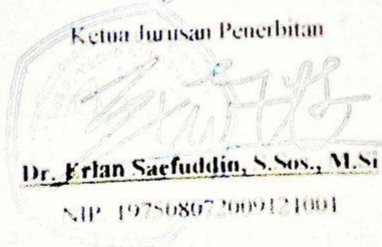 Ketua Jurusan Penerbitan
Dr. Erlan Saefuddin, S.Sos., M.Si
NIP. 197508072009121001